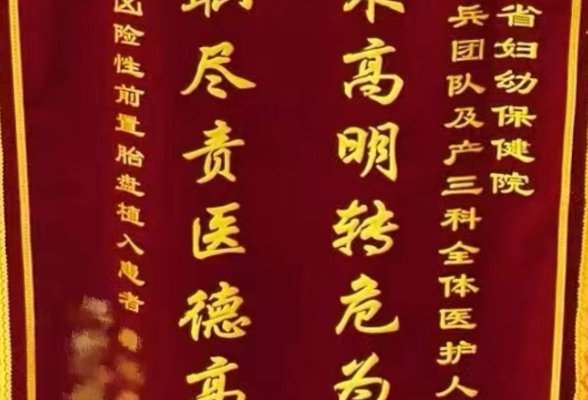 省妇幼保健院
兵团队及产三科全体医护人
术高明转危为
职尽责医德高
凶险性前置胎盘植入患者